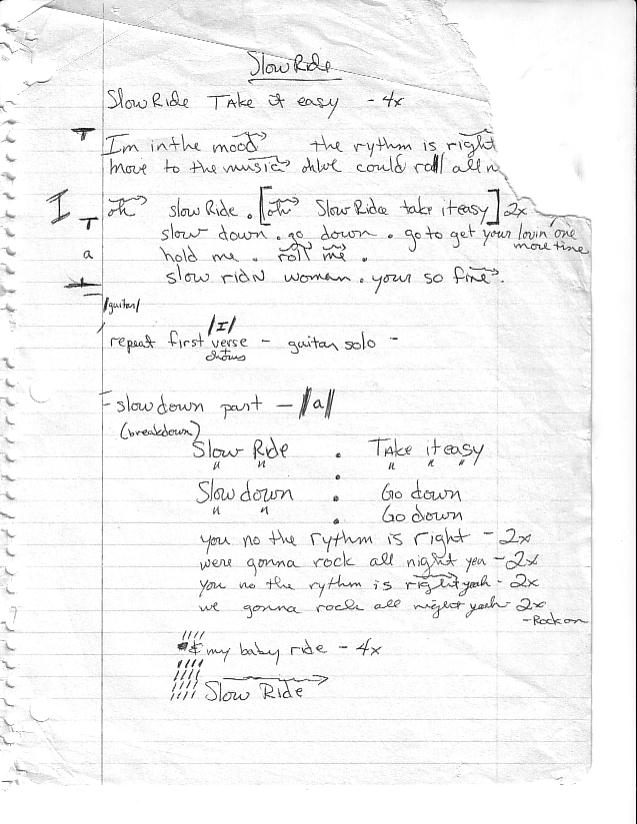 Slow Ride
Slow Ride Take it easy - 4x
T
Im in the mood the rythm is right
move to the music could roll all n
I
oh slow Ride. [oh Slow Ride take it easy] 2x
T
slow down. go down. go to get your lovin one more time
a
hold me. roll me.
slow ridN woman. your so fine.
/guitar/
/I/
repeat first verse - guitar solo -
+ chorus
- slow down part - //a//
(breakdown)
Slow Ride . Take it easy
" " . " " "
Slow down . Go down
" " . Go down
you no the rythm is right - 2x
were gonna rock all night yea - 2x
you no the rythm is right yeah - 2x
we gonna rock all night yeah 2x
- Rock on
my baby ride - 4x
Slow Ride